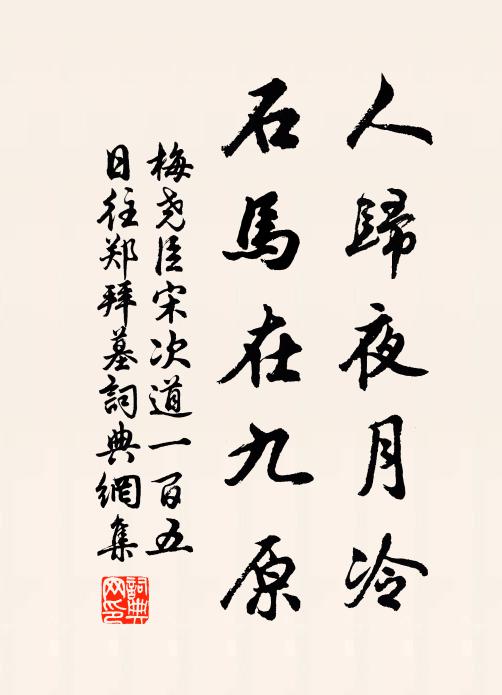 人歸夜月冷
石馬在九原
梅堯臣宋次道一百五
日往郑拜墓詞典網集
詞典网印